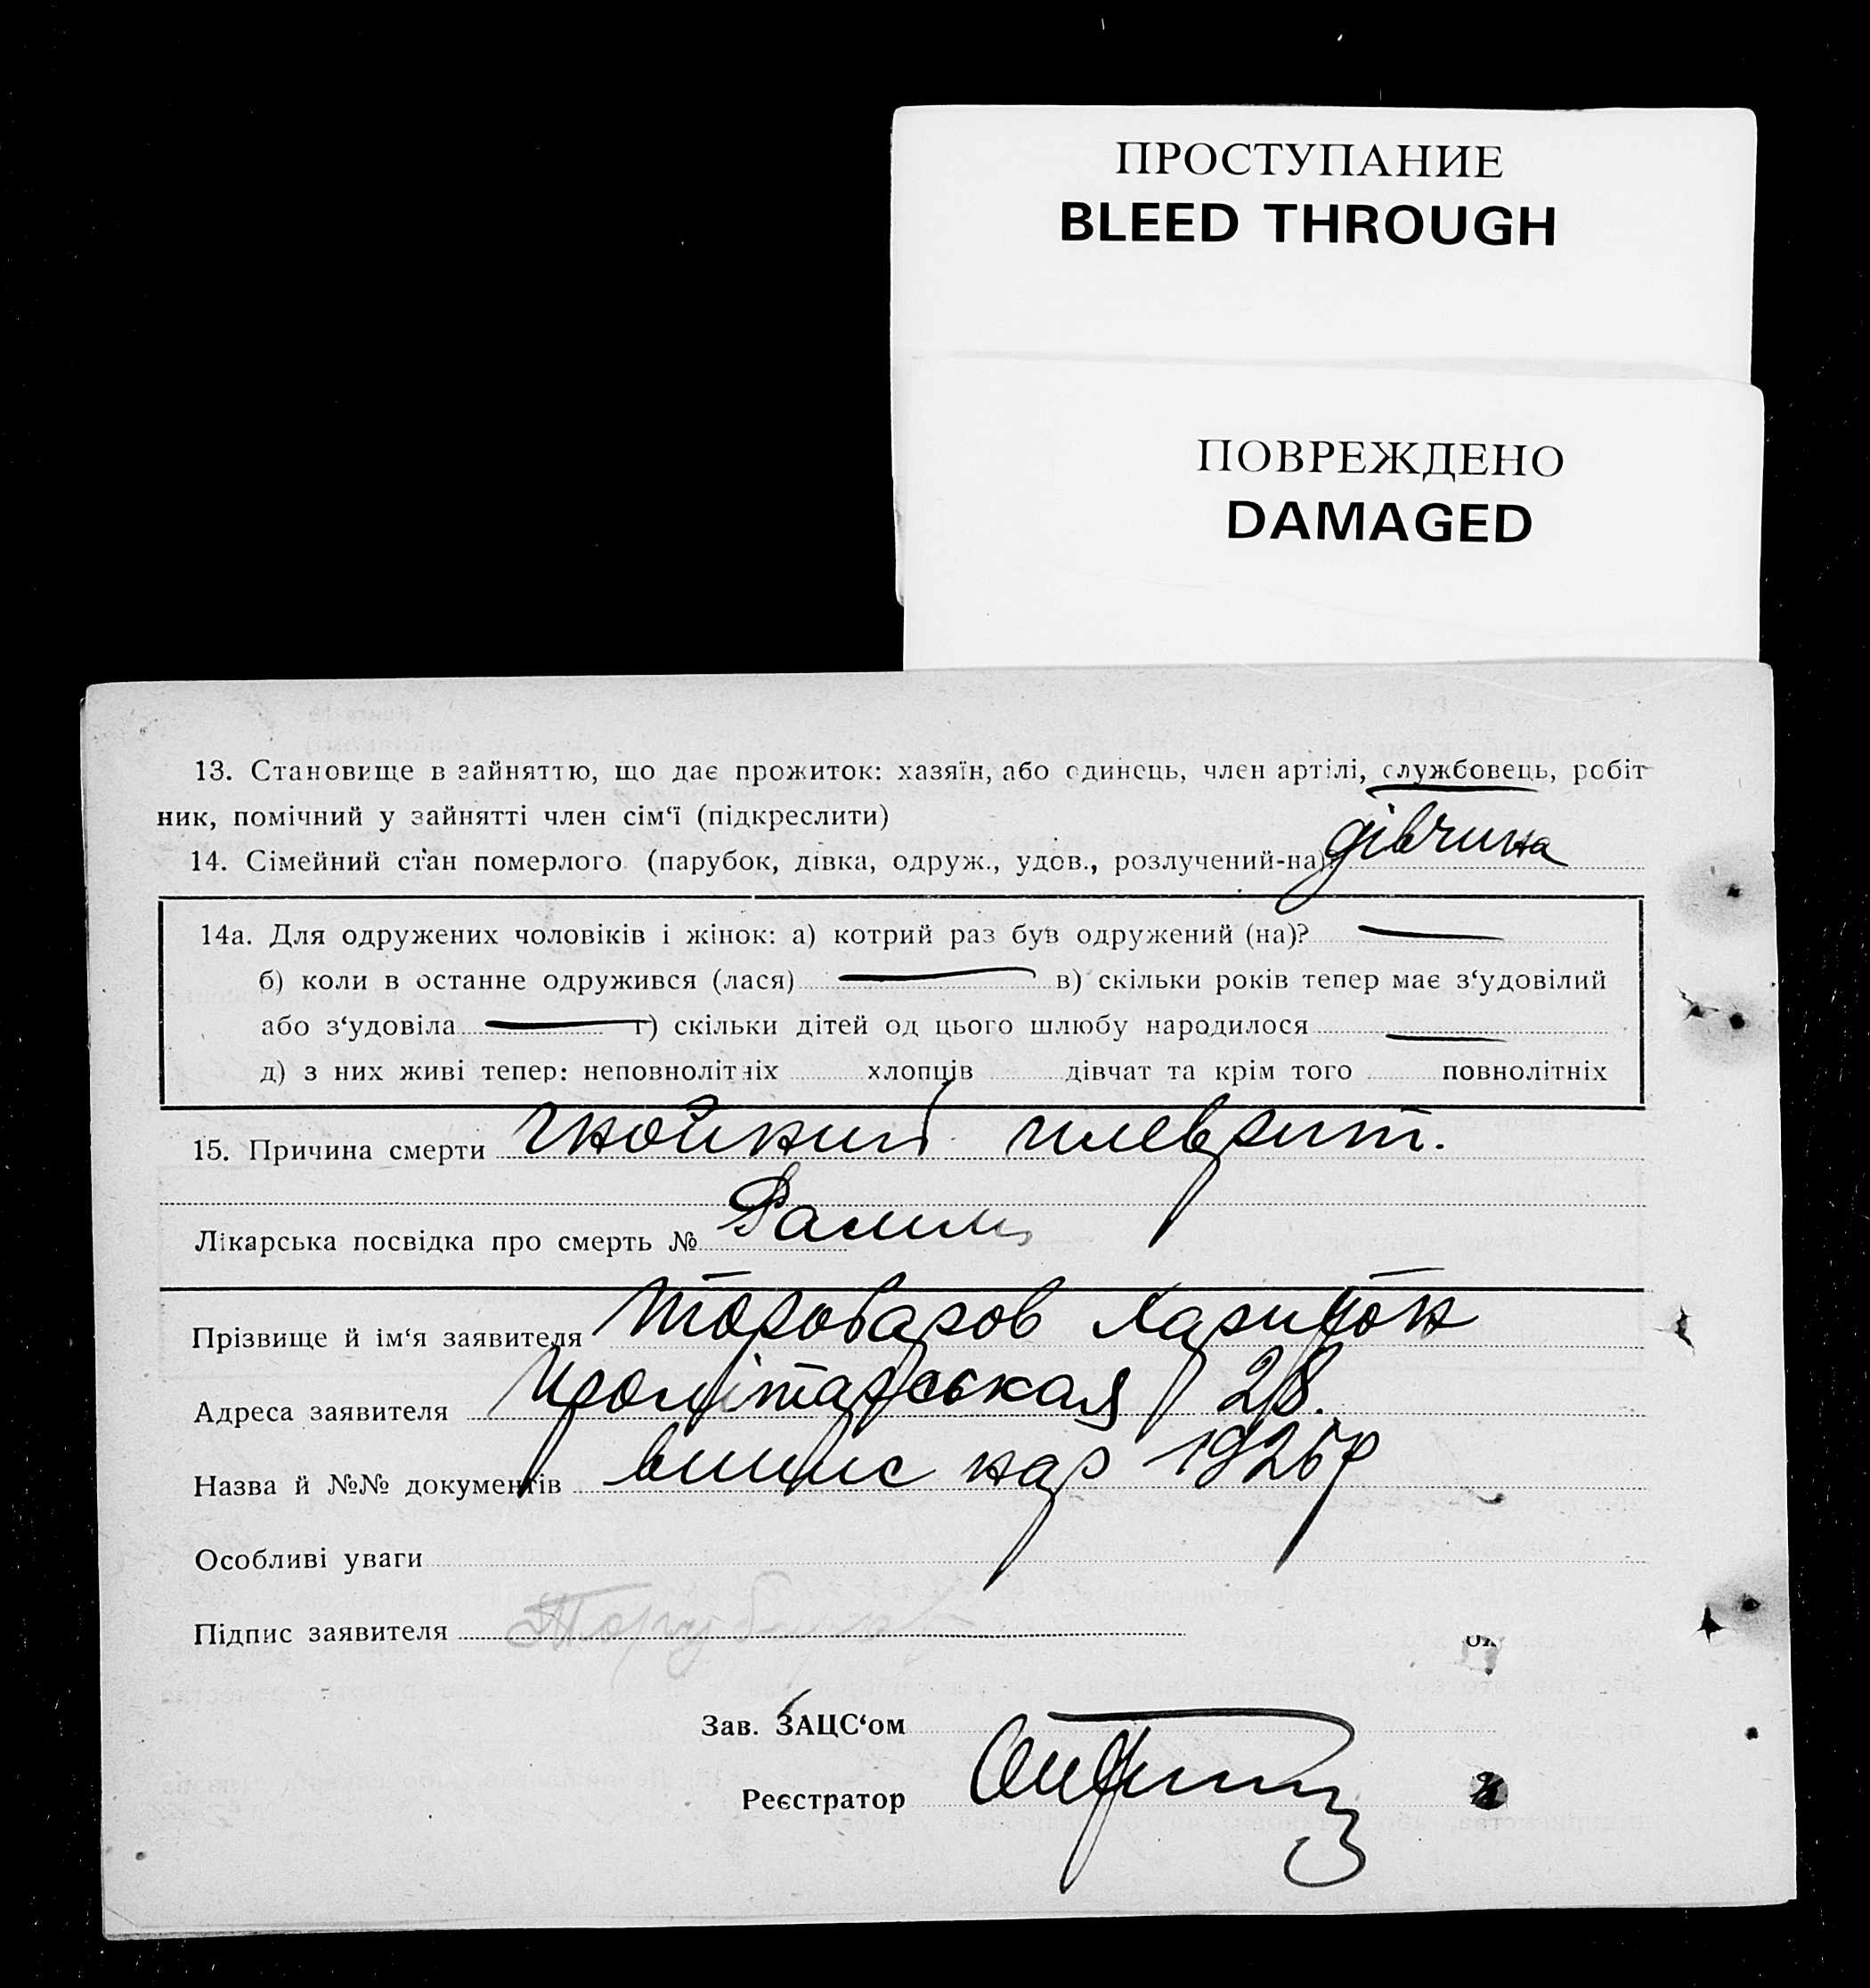 ПРОСТУПАНИЕ
BLEED THROUGH
ПОВРЕЖДЕНО
DAMAGED
13. Становище в зайняттю, що дає прожиток: хазяїн, або одинець, член артілі, службовець, робіт
ник, помічний у зайнятті член сім‘ї (підкреслити)
14. Сімейний стан померлого (парубок, дівка, одруж., удов., розлучений-на) дівчина
14а. Для одружених чоловіків і жінок: а) котрий раз був одружений (на)?
б) коли в останне одружився (лася) в) скільки років тепер має з‘удовілий
або з‘удовіла г) скільки дітей од цього шлюбу народилося
д) з них живі тепер: неповнолітніх хлопців дівчат та крім того повнолітніх
15. Причина смерти гнойний плеврит.
Лікарська посвідка про смерть №
Прізвище й ім‘я заявителя Харитон
Адреса заявителя 28.
Назва й №№ документів випис нар 1926р
Особливі уваги
Підпис заявителя
Зав. ЗАЦС‘ом
Реєстратор